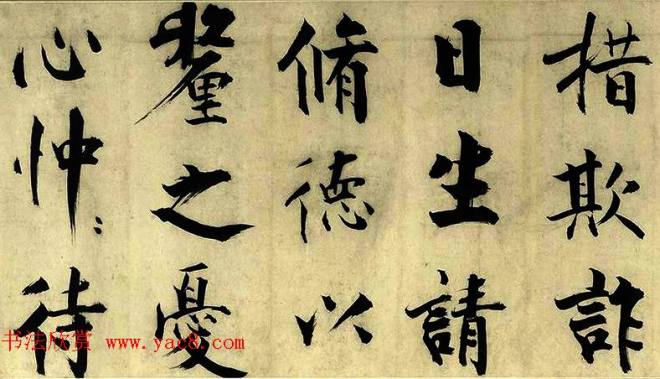 措欺詐
日生請
脩德以
釐之憂
心忡〻待
书法欣赏 www.yac8.com